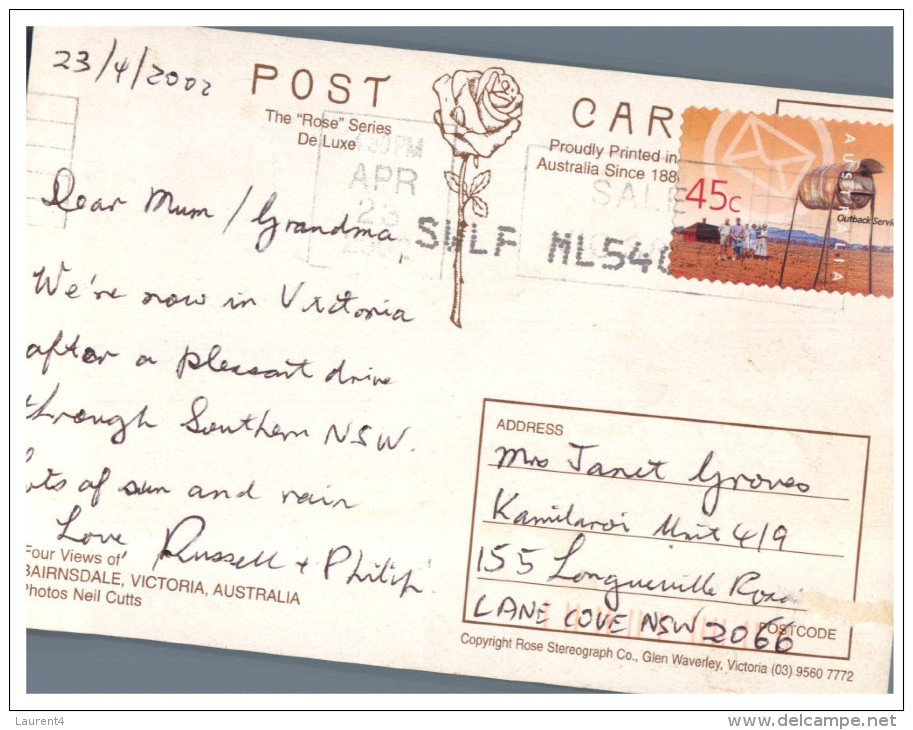 23/4/2002
POST CAR
The "Rose" Series
De Luxe
Proudly Printed in
Australia Since 188
4.30PM
APR
23
2002
SALE
45c
AUSTRALIA
Outback Servic
SWLF ML540
Dear Mum / Grandma,
We're now in Victoria
after a pleasant drive
through Southern NSW.
Lots of sun and rain
Love, Russell + Philip
Four Views of
BAIRNSDALE, VICTORIA, AUSTRALIA
Photos Neil Cutts
ADDRESS
Mrs Janet Groves
Kamilaroi Unit 419
155 Longueville Road
LANE COVE NSW 2066
POSTCODE
Copyright Rose Stereograph Co., Glen Waverley, Victoria (03) 9560 7772
Laurent4
www.delcampe.net